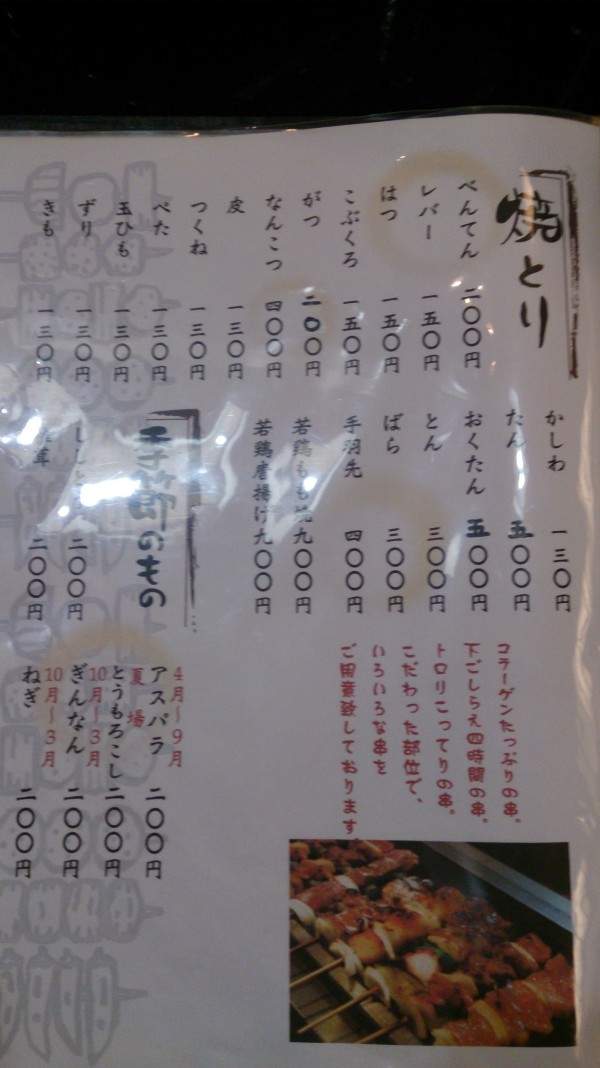 焼とり
べんてん 二〇〇円
レバー 一五〇円
はつ 一五〇円
こぶくろ 一五〇円
がつ 二〇〇円
なんこつ 四〇〇円
皮 一三〇円
つくね 一三〇円
べた 一三〇円
玉ひも 一三〇円
ずり 一三〇円
きも 一三〇円
かしわ 一三〇円
たん 五〇〇円
おくたん 五〇〇円
とん 三〇〇円
ばら 三〇〇円
手羽先 四〇〇円
若鶏もも焼 九〇〇円
若鶏唐揚げ 九〇〇円
季節のもの
二〇〇円
茸 二〇〇円
4月〜9月
アスパラ 二〇〇円
夏場
とうもろこし 二〇〇円
10月〜3月
ぎんなん 二〇〇円
10月〜3月
ねぎ 二〇〇円
コラーゲンたっぷりの串。
下ごしらえ四時間の串。
トロリこってりの串。
こだわった部位で、
いろいろな串を
ご用意致しております